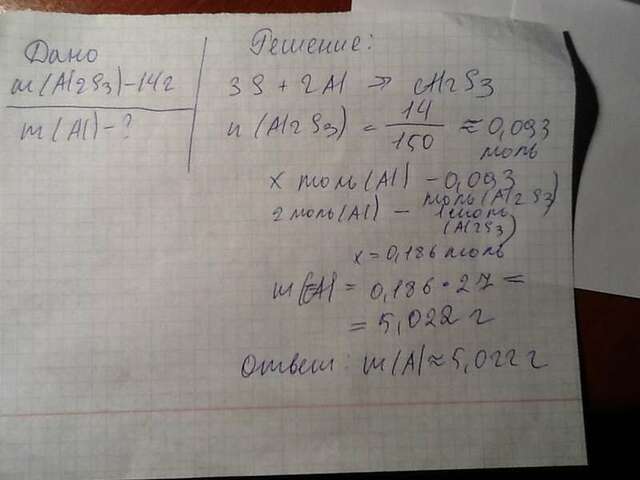 Дано
m(Al2S3)-14г
m(Al)-?
Решение:
3S + 2Al → Al2S3
n(Al2S3) = 14/150 ≈ 0,093
моль
x моль(Al) - 0,093
моль(Al2S3)
2 моль(Al) - 1 моль
(Al2S3)
x = 0,186 моль
m(Al) = 0,186 · 27 =
= 5,022 г
Ответ: m(Al) ≈ 5,022 г